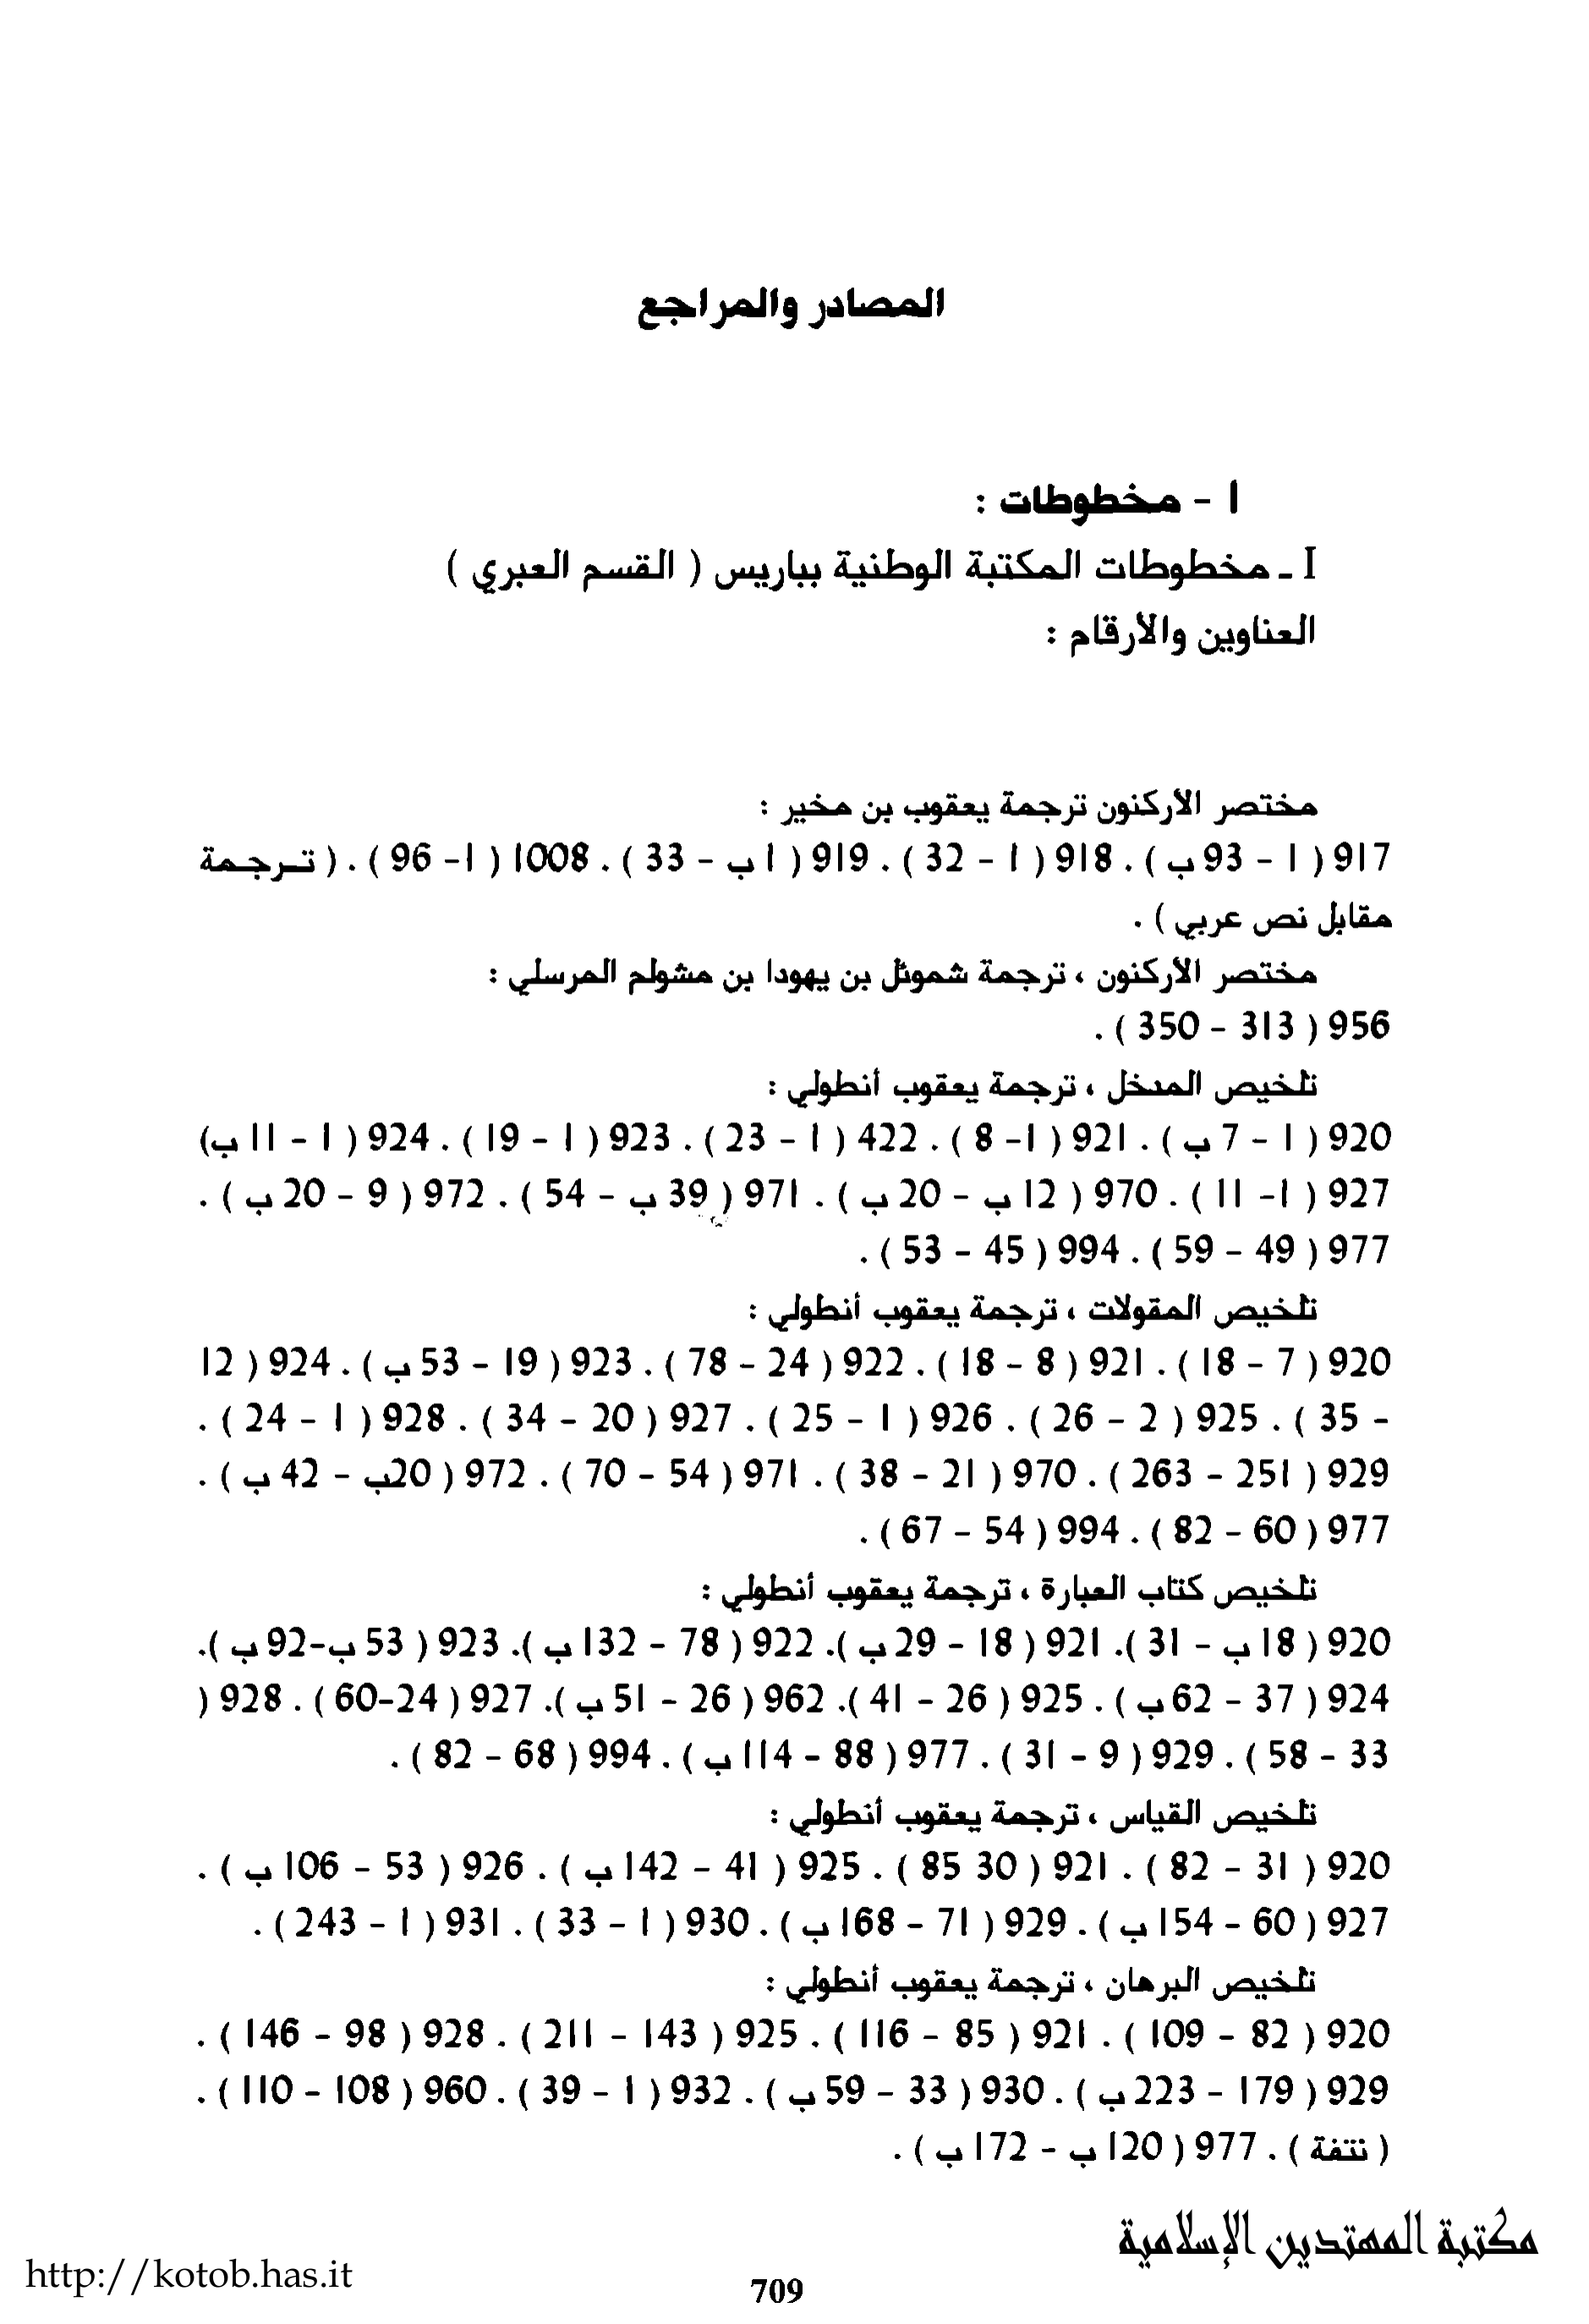 المصادر والمراجع
ا - مخطوطات :
I - مخطوطات المكتبة الوطنية بباريس ( القسم العبري )
العناوين والأرقام :
مختصر الأركنون ترجمة يعقوب بن مخير :
917 ( 1 - 93 ب ) . 918 ( 1 - 32 ) . 919 ( 1 ب - 33 ) . 1008 ( 1- 96 ) . ( ترجمة
مقابل نص عربي ) .
مختصر الأركنون ، ترجمة شموئل بن يهودا بن مشولم المرسلي :
956 ( 313 - 350 ) .
تلخيص المدخل ، ترجمة يعقوب أنطولي :
920 ( 1 - 7 ب ) . 921 ( 1- 8 ) . 422 ( 1 - 23 ) . 923 ( 1 - 19 ) . 924 ( 1 - 11 ب)
927 ( 1- 11 ) . 970 ( 12 ب - 20 ب ) . 971 ( 39 ب - 54 ) . 972 ( 9 - 20 ب ) .
977 ( 49 - 59 ) . 994 ( 45 - 53 ) .
تلخيص المقولات ، ترجمة يعقوب أنطولي :
920 ( 7 - 18 ) . 921 ( 8 - 18 ) . 922 ( 24 - 78 ) . 923 ( 19 - 53 ب ) . 924 ( 12
- 35 ) . 925 ( 2 - 26 ) . 926 ( 1 - 25 ) . 927 ( 20 - 34 ) . 928 ( 1 - 24 ) .
929 ( 251 - 263 ) . 970 ( 21 - 38 ) . 971 ( 54 - 70 ) . 972 ( 20ب - 42 ب ) .
977 ( 60 - 82 ) . 994 ( 54 - 67 ) .
تلخيص كتاب العبارة ، ترجمة يعقوب أنطولي :
920 ( 18 ب - 31 ). 921 ( 18 - 29 ب ). 922 ( 78 - 132 ب ). 923 ( 53 ب-92 ب ).
924 ( 37 - 62 ب ) . 925 ( 26 - 41 ). 962 ( 26 - 51 ب ). 927 ( 24-60 ) . 928 (
33 - 58 ) . 929 ( 9 - 31 ) . 977 ( 88 - 114 ب ) . 994 ( 68 - 82 ) .
تلخيص القياس ، ترجمة يعقوب أنطولي :
920 ( 31 - 82 ) . 921 ( 30 85 ) . 925 ( 41 - 142 ب ) . 926 ( 53 - 106 ب ) .
927 ( 60 - 154 ب ) . 929 ( 71 - 168 ب ) . 930 ( 1 - 33 ) . 931 ( 1 - 243 ) .
تلخيص البرهان ، ترجمة يعقوب أنطولي :
920 ( 82 - 109 ) . 921 ( 85 - 116 ) . 925 ( 143 - 211 ) . 928 ( 98 - 146 ) .
929 ( 179 - 223 ب ) . 930 ( 33 - 59 ب ) . 932 ( 1 - 39 ) . 960 ( 108 - 110 ) .
( نتفة ) . 977 ( 120 ب - 172 ب ) .
مكتبة المهتدين الإسلامية
http://kotob.has.it
709